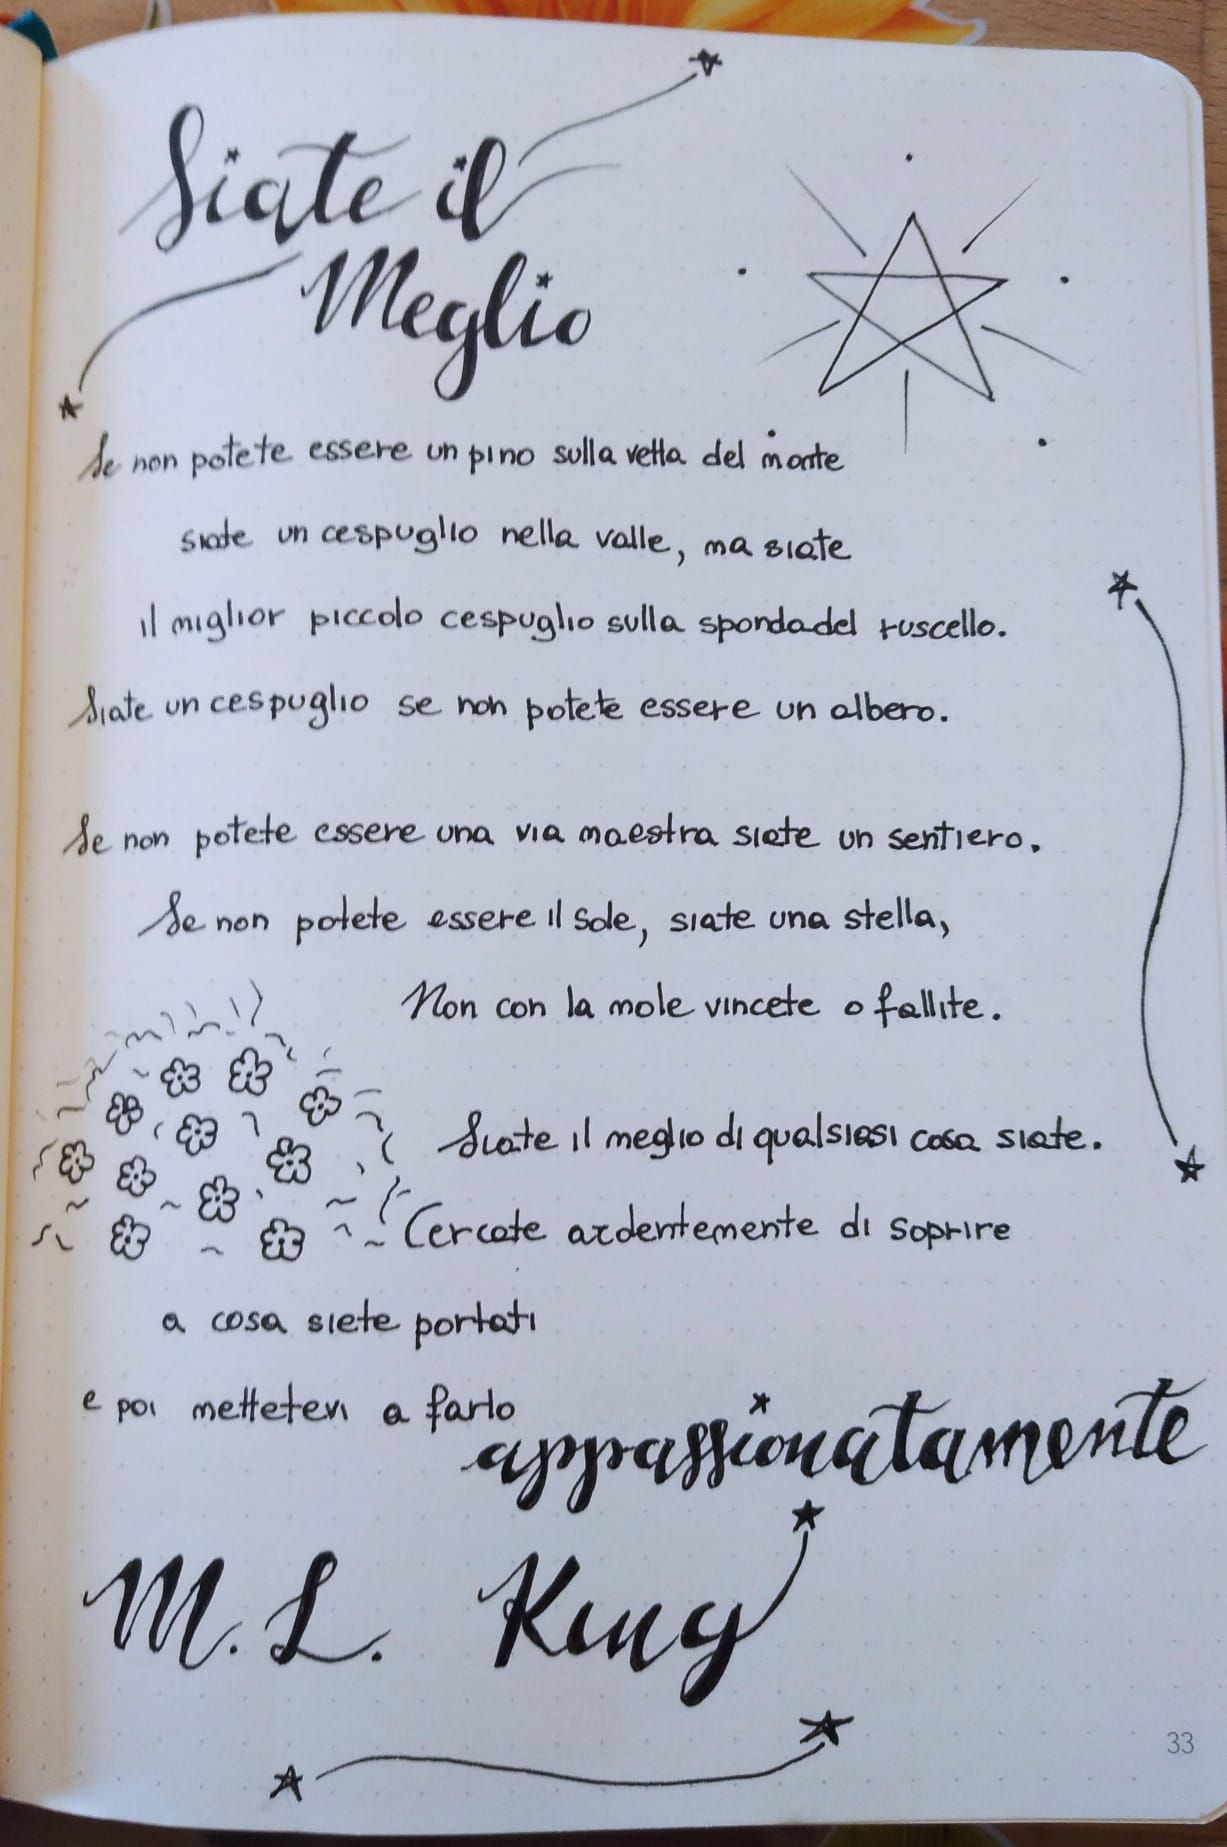 Siate il
Meglio
Se non potete essere un pino sulla vetta del monte
siate un cespuglio nella valle, ma siate
il miglior piccolo cespuglio sulla sponda del ruscello.
Siate un cespuglio se non potete essere un albero.
Se non potete essere una via maestra siate un sentiero.
Se non potete essere il sole, siate una stella,
Non con la mole vincete o fallite.
Siate il meglio di qualsiasi cosa siate.
Cercate ardentemente di soprire
a cosa siete portati
e poi mettetevi a farlo
appassionatamente
M. L. King
33